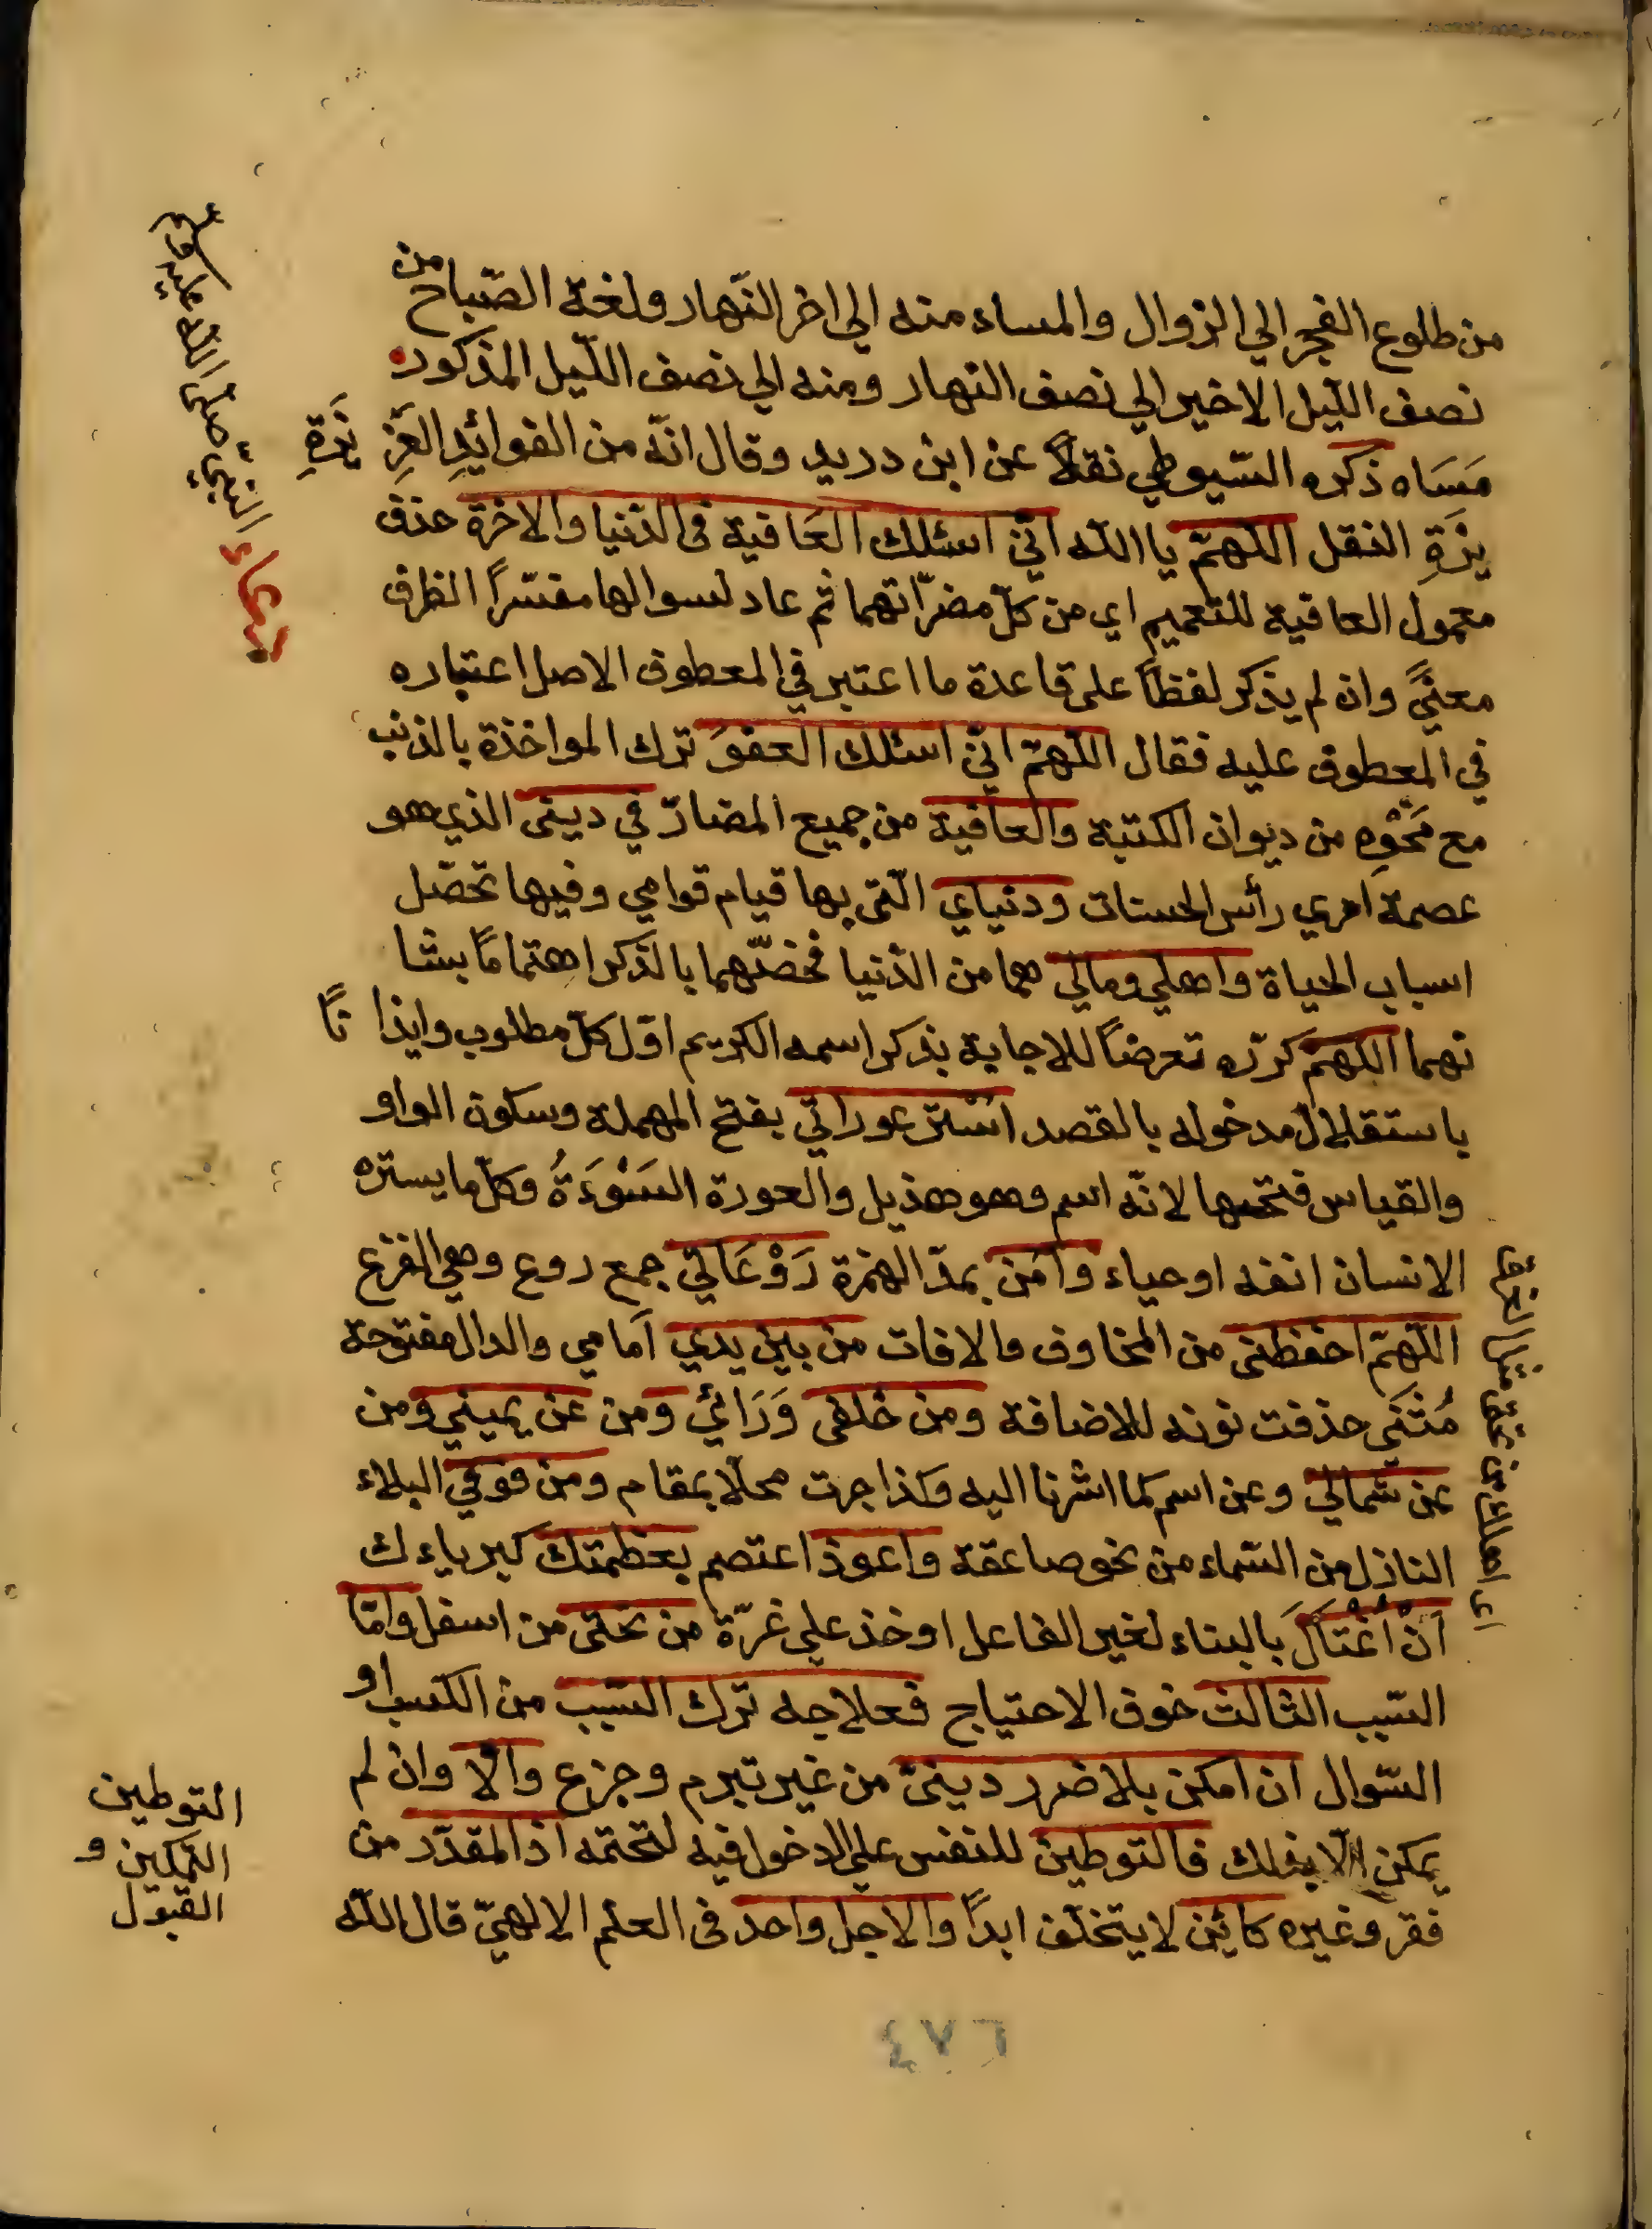 من طلوع الفجر الي الزوال والمساء منه الي اخر النّهار ولغة الصّباح من
نصف اللّيل الاخير الي نصف النهار ومنه الي نصف اللّيل المذكور
مَسَاه ذكره السّيوطي نقلاً عن ابن دريد وقال انّه من الفوائِدِ العَزِ يْزَةِ
يزَةِ النقل اللّهمّ يا اللّه انّي اسئلك العَافية فى الدّنيا والاخرة حذف
معمول العافية للتعميم اي من كلّ مضرّاتهما ثم عاد لسوالها مفسّراً الظرف
معنىً وان لم يذكر لفظاً على قاعدة ما اعتبر في المعطوف الاصل اعتباره
في المعطوف عليه فقال اللّهمّ انّي اسئلك العفوَ ترك المواخذة بالذنب
مع مَحْوِهِ من ديوان الكتبة والعافية من جميع المضارّ في دينى الذي هو
عصمة امري رأس الحسنات ودنياي الّتى بها قيام قوامي وفيها تحصّل
اسباب الحياة واهلي ومالي هما من الدّنيا فخصّهما بالذكر اهتماماً بشا
نهما اللّهمّ كرّره تعرضاً للاجابة بذكر اسمه الكريم اوّل كلّ مطلوب وايذا ناً
باستقلال مدخوله بالقصد استر عوراتي بفتح المهملة وسكون الواو
والقياس فتحها لانّه اسم وهو هذيل والعورة السَوْءَةُ وكلّ ما يستره
الانسان انفه او حياء وآمن بمدّ الهمزة رَوْعَاتي جمع روع وهي الفزع
اللّهمّ احفظنى من المخاوف والافات من بين يدي اَمامي والدال مفتوحة
مُثَنَّى حذفت نونه للاضافة ومن خلفى وَرَائي ومن عن يميني ومن
عن شمالي وعن اسم كما اشرنا اليه وكذا جرت محلّا بمقام ومن فوقي البلاء
النازل من السّماء من نحو صاعقة واعوذ اعتصم بعظمتك كبرياءك
اَنْ اُغْتَالَ بالبناء لغير الفاعل اوخذ على غرّة من تحتى من اسفل وامّا
السّبب الثالث خوف الاحتياج فعلاجه ترك السّبب من الكسب او
السّوال ان امكن بلا ضرر دينىّ من غير تبرم وجزع والّا وان لم
يمكن الّا بذلك فالتوطين للنفس على الدخول فيه لتحتمه اذ المقدّر من
فقر وغيره كائن لا يتخلف ابداً والاجل واحد فى العلم الالهيّ قال اللّه
دعاء النبيّ صلى الله عليه وسلم
التوطين
التمكين و
القبول
٤٧٦